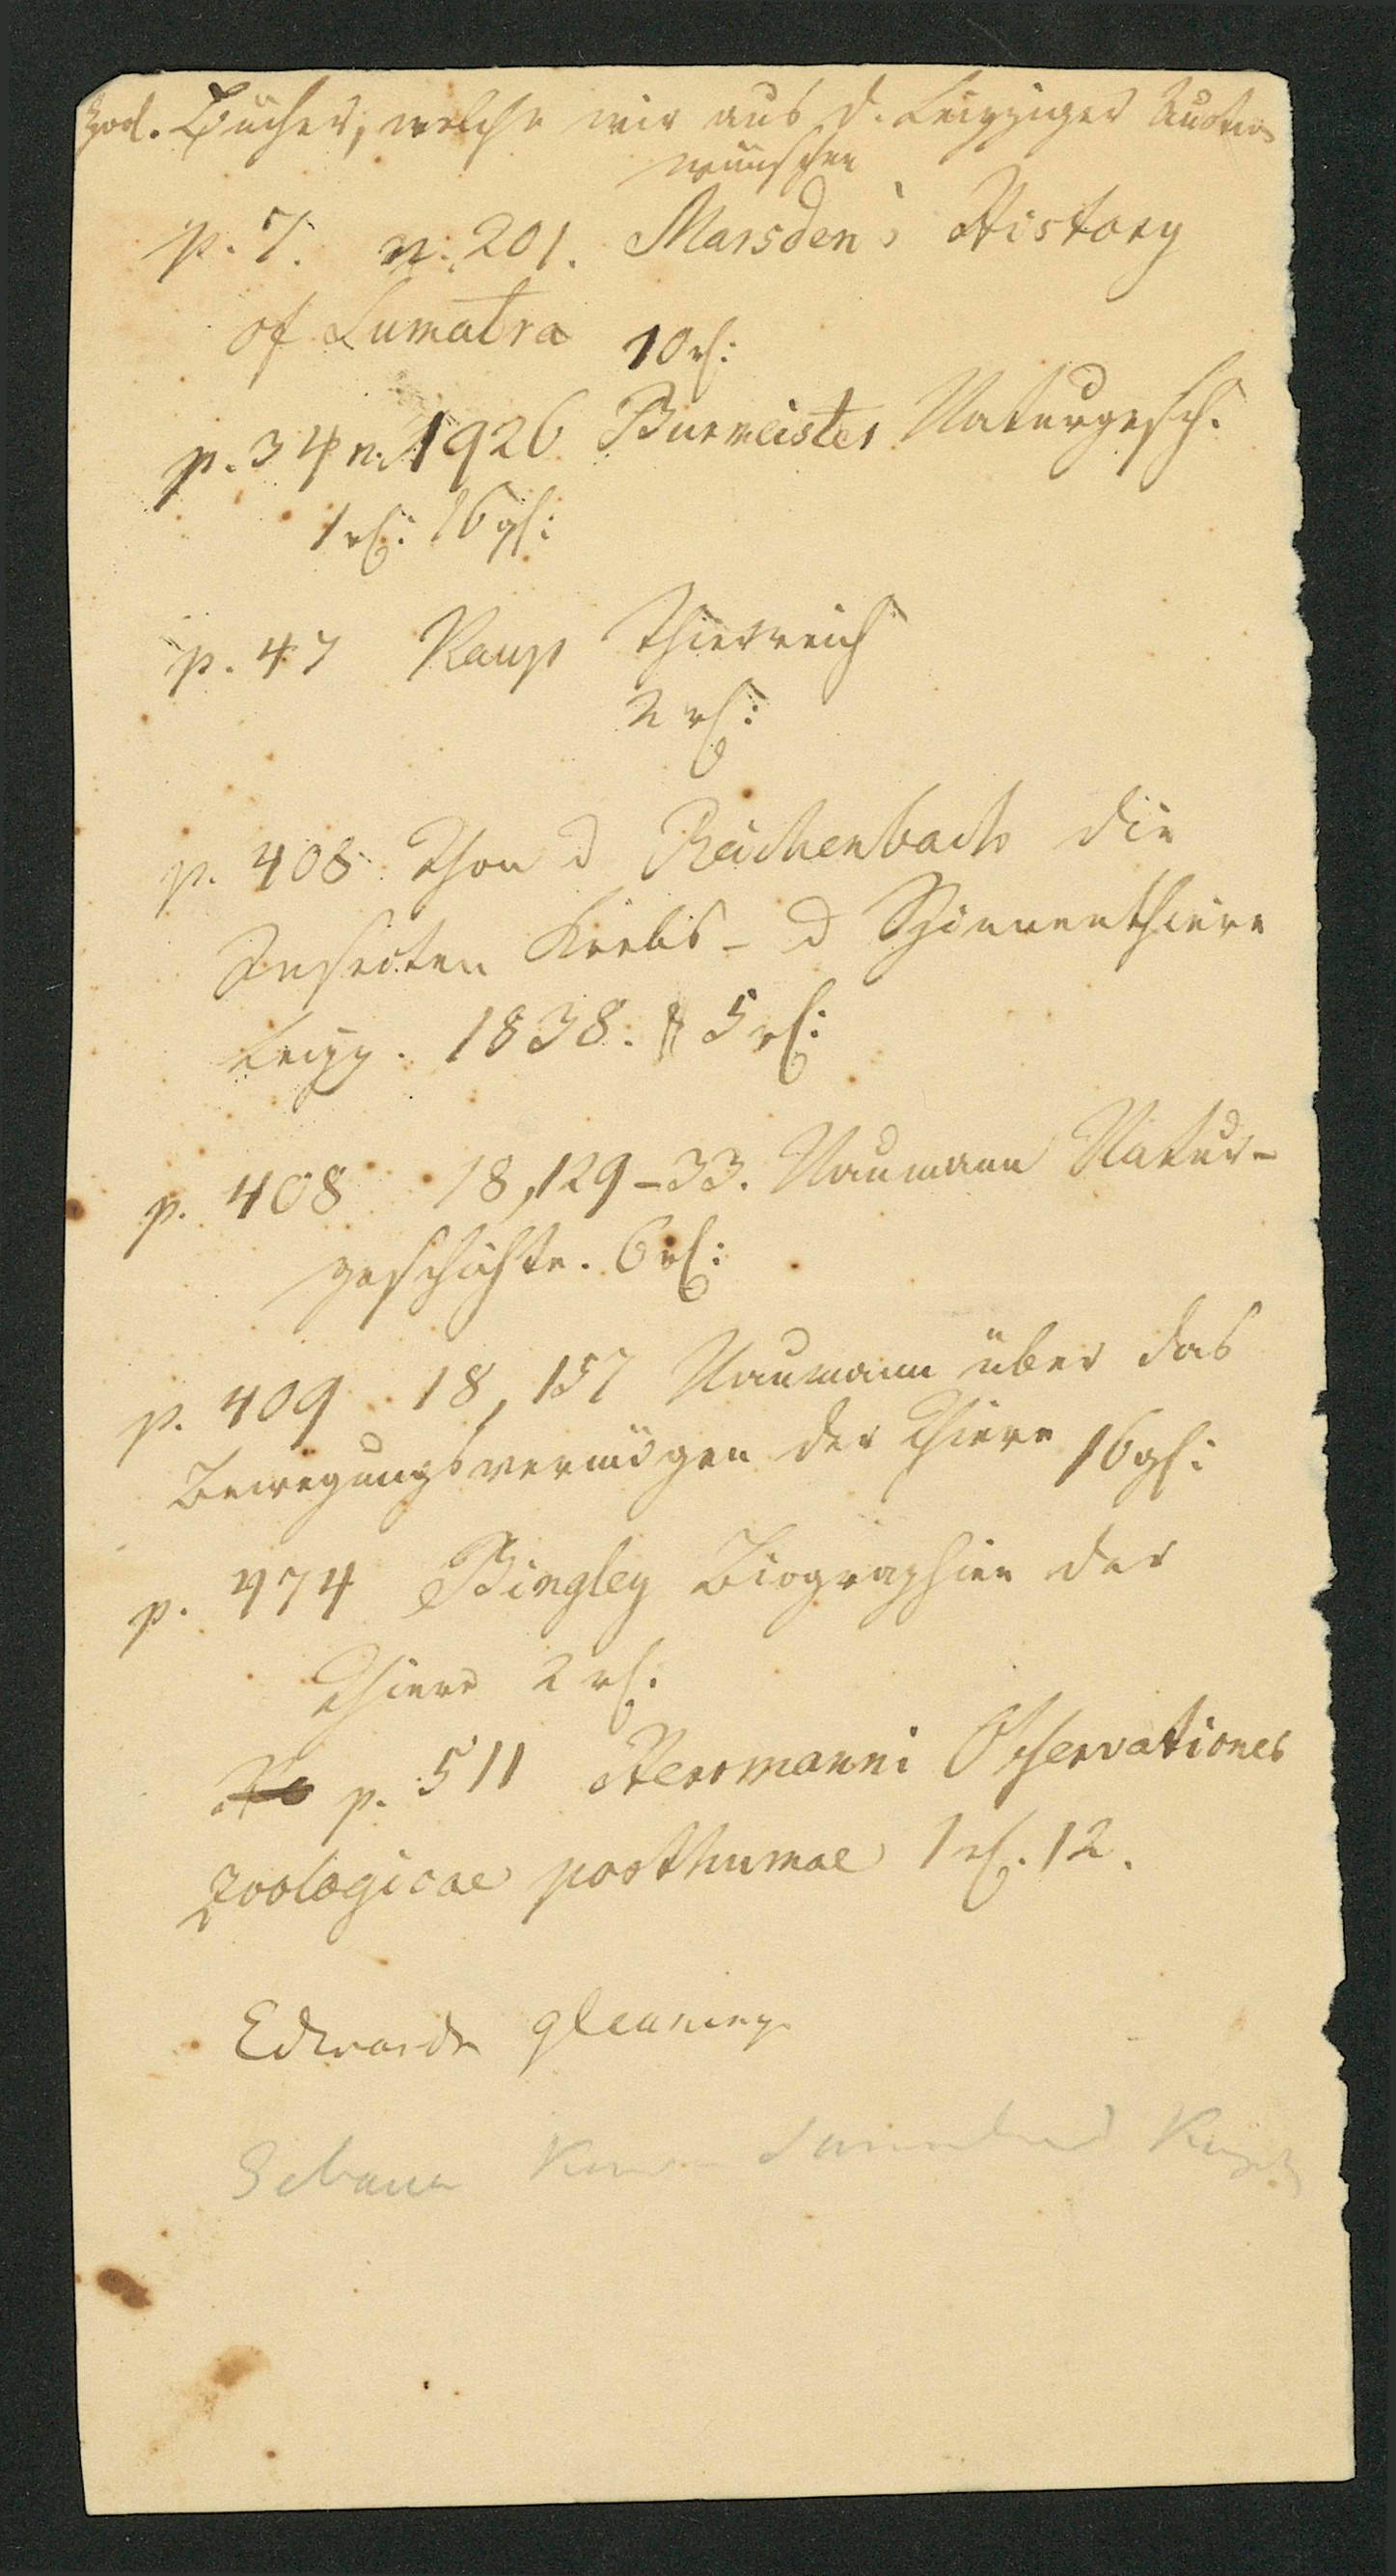 Zool. Bücher, welche wir aus d. Leipziger Auction
wünschen
p. 7. n. 201. Marsden's History
of Sumatra 10 rℓ:
p. 34 n. 1926 Burmeister Naturgesch.
1 rℓ: 16 gℓ:
p. 47 Kaup Thierreich
2 rℓ:
p. 408 Thon d Reichenbach die
Insecten Krebs- d Spinnenthiere
Leipz. 1838. 5 rℓ:
p. 408 18,129-33. Naumann Natur-
geschichte. 6 rℓ:
p. 409 18,157 Naumann über das
Bewegungsvermögen der Thiere 16 gℓ:
p. 474 Bingley Biographien der
Thiere 2 rℓ.
p. 511 Hermanni Observationes
zoologicae posthumae 1 rℓ. 12.
Edwards gleanings